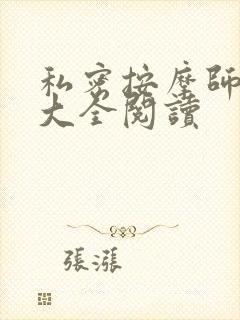 私密按摩師
大全閱讀
張漲